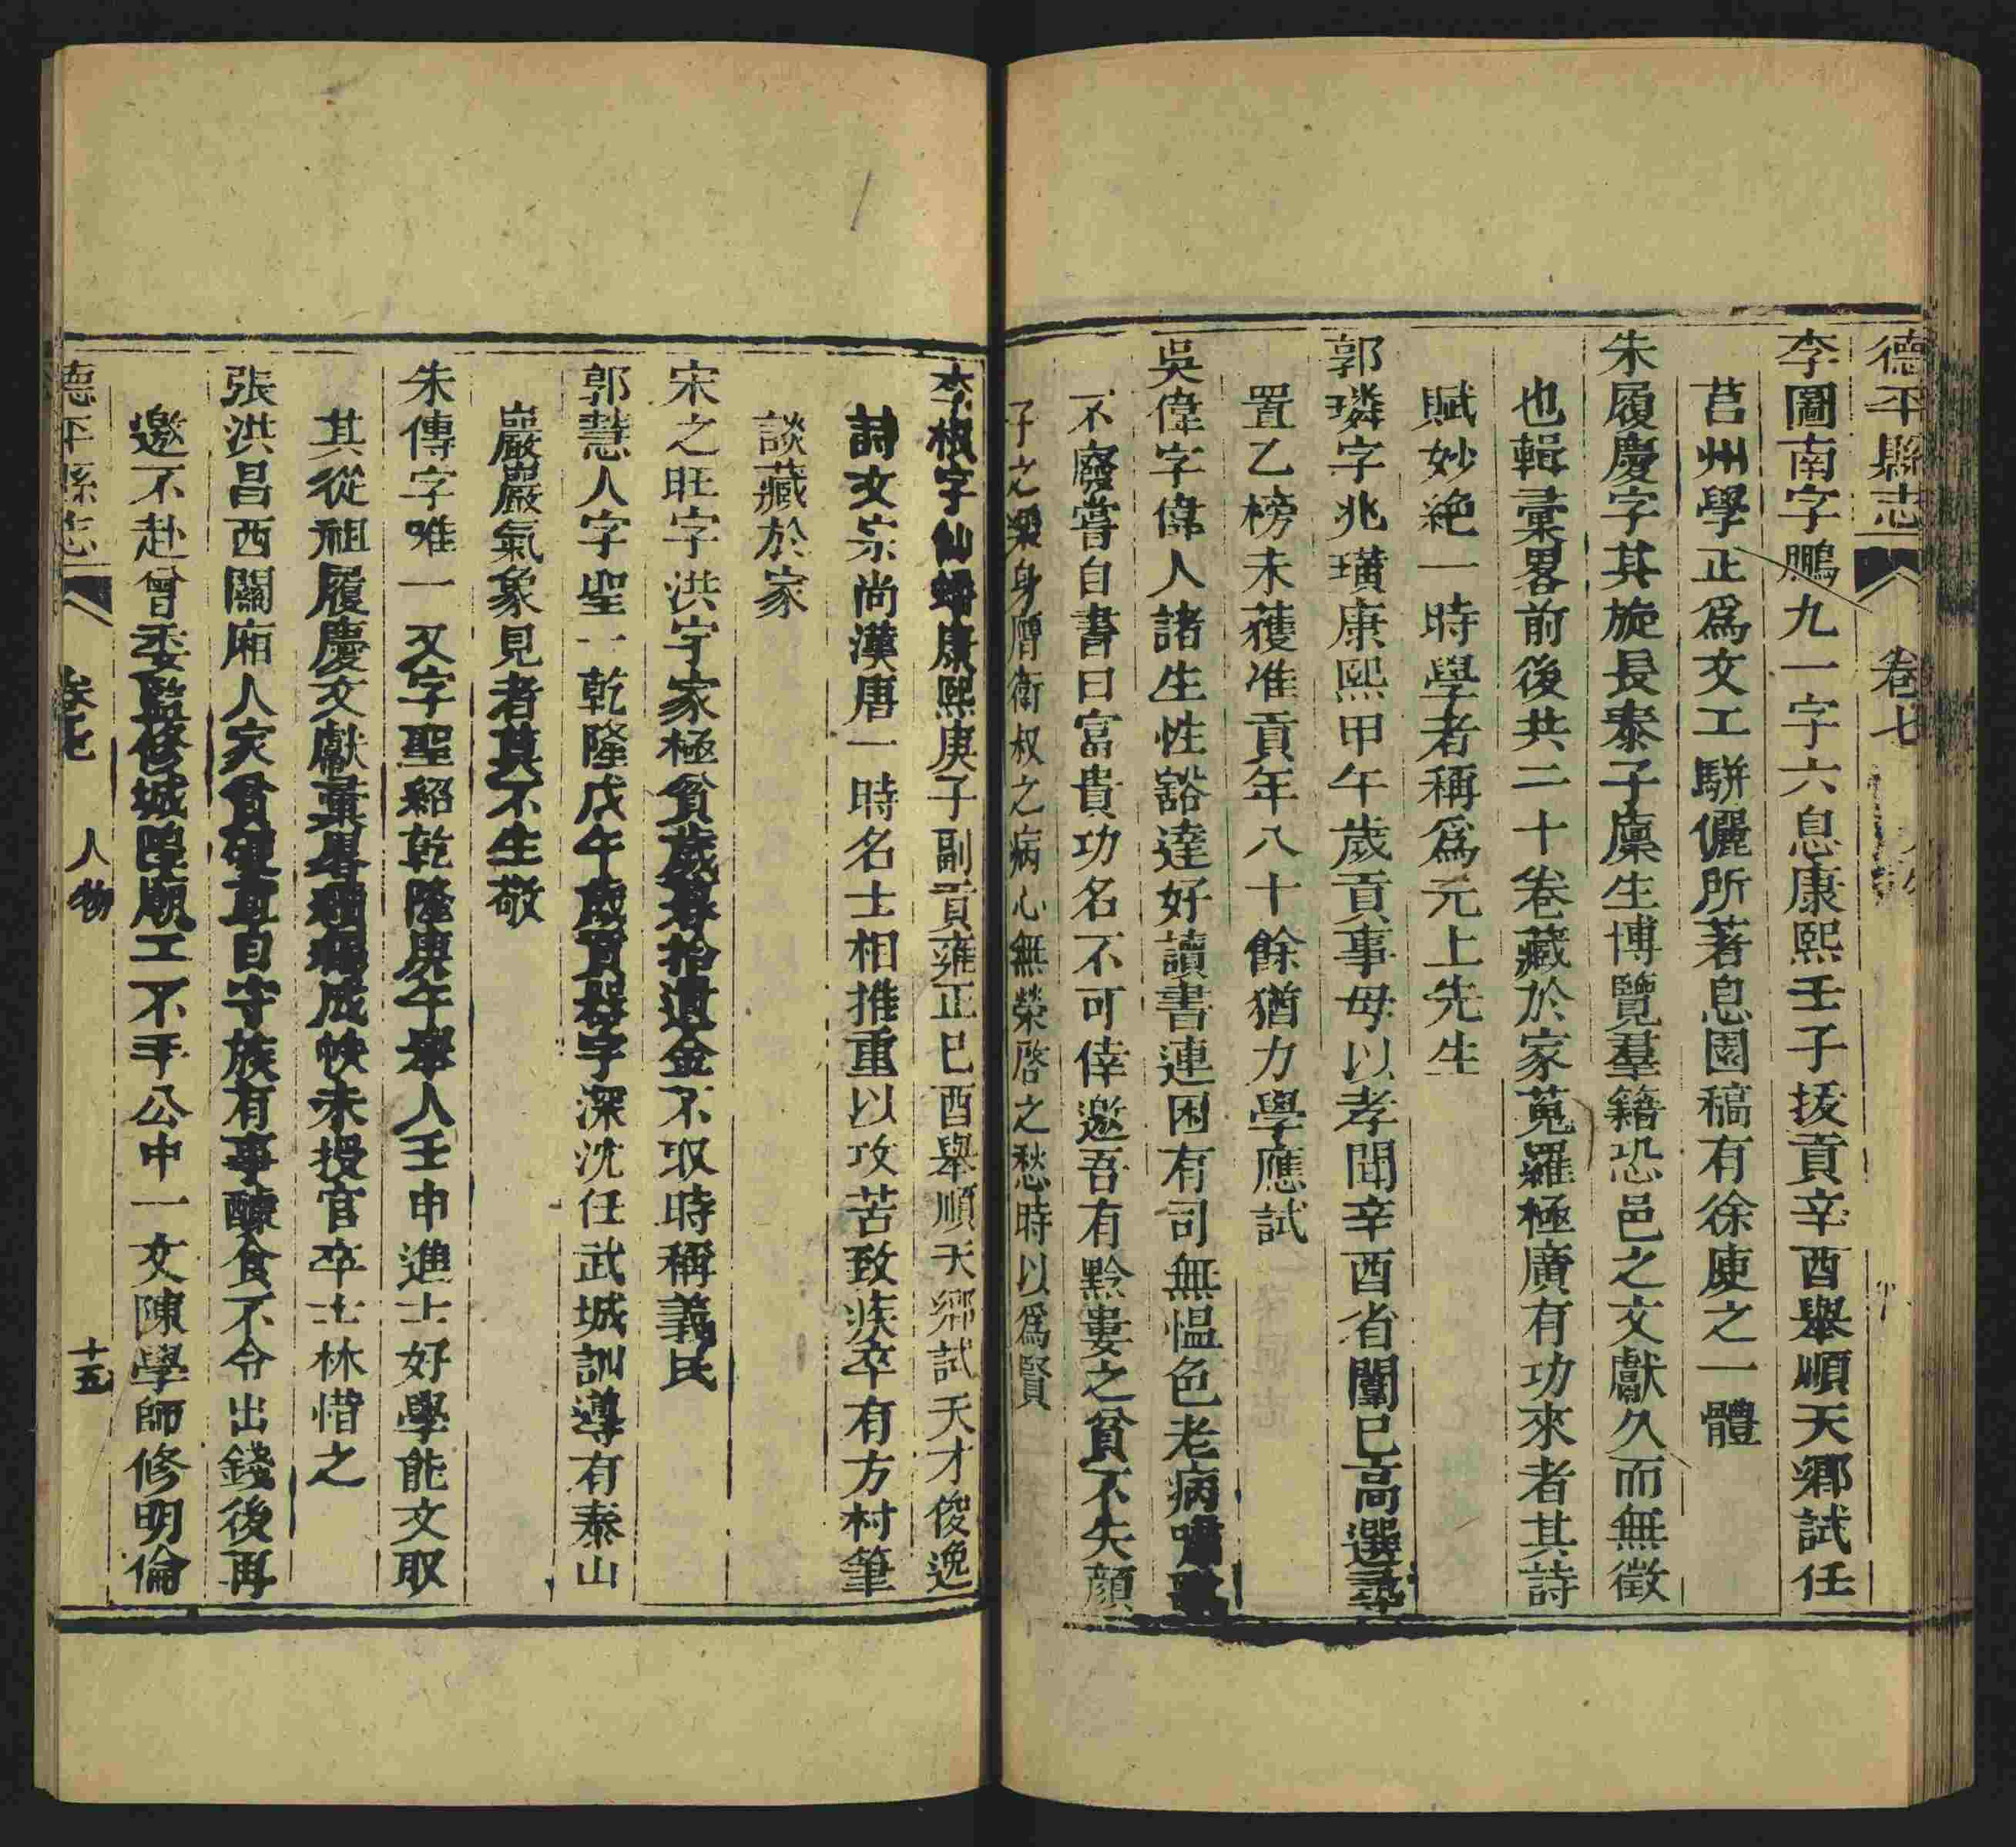 德平縣志 卷七
李圖南字鵬九一字六息康熙壬子拔貢辛酉舉順天鄉試任
莒州學正爲文工駢儷所著息園稿有徐庾之一體
朱履慶字其旋長泰子廩生博覽羣籍恐邑之文獻久而無徵
也輯彙畧前後共二十卷藏於家蒐羅極廣有功來者其詩
賦妙絶一時學者稱爲元上先生
郭璘字兆璜康熙甲午歲貢事母以孝聞辛酉省闈已高選尋
置乙榜未獲准貢年八十餘猶力學應試
吳偉字偉人諸生性豁達好讀書連困有司無慍色老病嘯歌
不廢嘗自書曰富貴功名不可倖邀吾有黔婁之貧不失顔
子之樂身膺衛叔之病心無榮啓之愁時以爲賢
李椒字仙蟠康熙庚子副貢雍正已酉舉順天鄉試天才俊逸
詩文宗尚漢唐一時名士相推重以攻苦致疾卒有方村筆
談藏於家
宋之旺字洪宇家極貧歲暮拾遺金不取時稱義民
郭慧人字聖一乾隆戊午歲貢器宇深沈任武城訓導有泰山
巖巖氣象見者莫不生敬
朱傳字唯一又字聖紹乾隆庚午舉人壬申進士好學能文取
其從祖履慶文獻彙畧種種成帙未授官卒士林惜之
張洪昌西關廂人家貧硬直自守族有事醵食不令出錢後再
邀不赴曾委監修城隍廟工不干公中一文陳學師修明倫
德平縣志 卷七 人物 十五